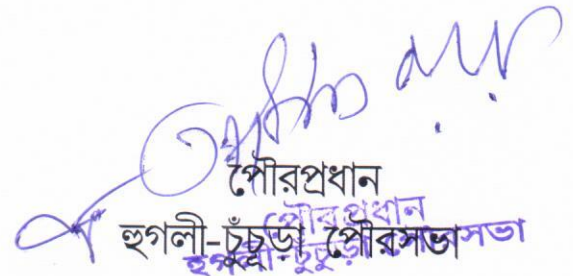 পৌরপ্রধান
হুগলী-চুঁচুড়া পৌরসভা
পৌরপ্রধান
হুগলী-চুঁচুড়া পৌরসভা